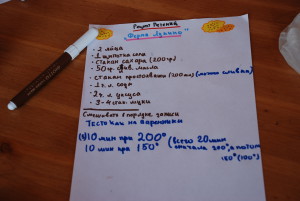 Рецепт Печений
"Ферма Лукино"
- 2 яйца
- 1 щепотка соли
- стакан сахара (200гр)
- 50гр. слив. масла
- стакан простокваши (200мл) (можно сливки)
- 1 ч. л. соды
- 2 ч. л. уксуса
- 3-4 стак. муки
Смешивать в порядке записи
Тесто как на вареники
10 мин при 200°
(всего 20 мин
10 мин при 150°
сначала 200°, а потом
150° (100°)